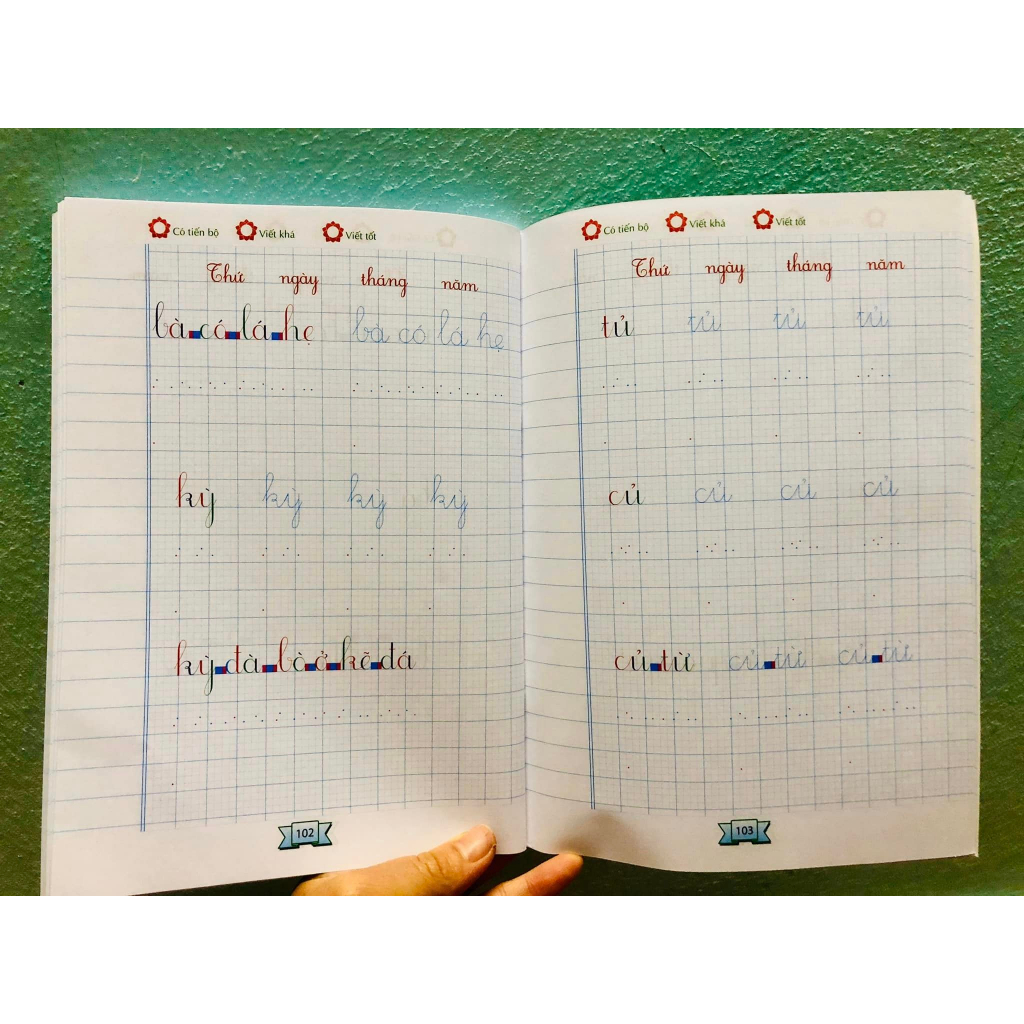 Có tiến bộ Viết khá Viết tốt
Thứ ngày tháng năm
bà có lá hẹ bà có lá hẹ
kỳ kỳ kỳ kỳ
kỳ đà bò ở kẽ đá
102
Có tiến bộ Viết khá Viết tốt
Thứ ngày tháng năm
tủ tủ tủ tủ
củ củ củ củ
củ từ củ từ củ từ
103